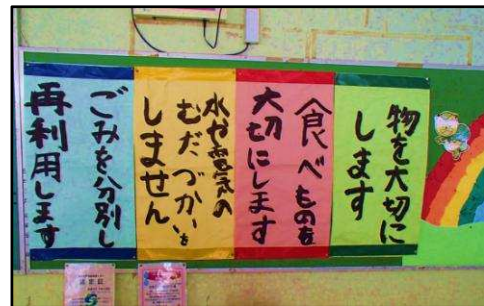 物を大切に
します
食べものを
大切にします
水や電気の
むだづかいを
しません
ごみを分別し
再利用します
認定証